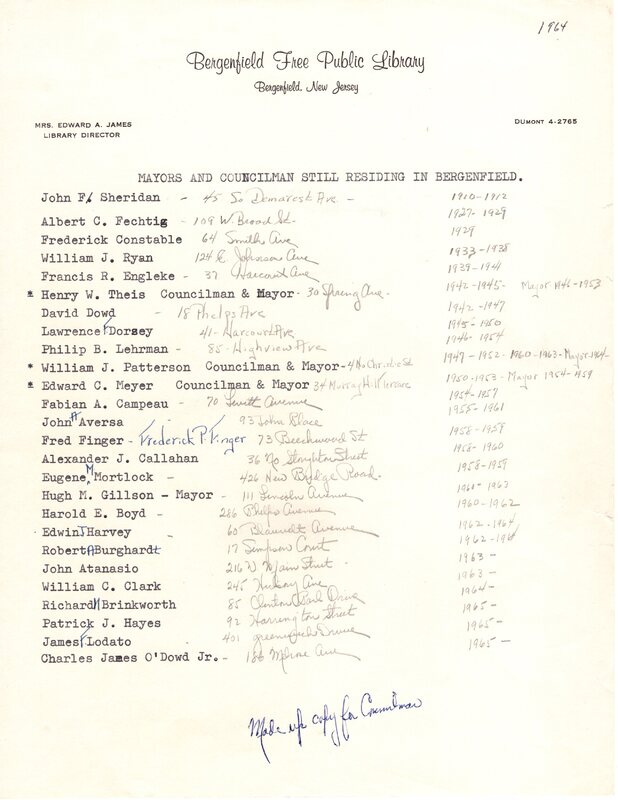 1964
Bergenfield Free Public Library
Bergenfield, New Jersey
MRS. EDWARD A. JAMES
LIBRARY DIRECTOR
DUMONT 4-2765
MAYORS AND COUNCILMAN STILL RESIDING IN BERGENFIELD.
John F. Sheridan - 45 So Demarest Ave - 1910-1912
Albert C. Fechtig - 109 W. Broad St. 1927-1929
Frederick Constable 64 Smith Ave 1929
William J. Ryan - 124 E Johnson Ave 1933-1938
Francis R. Engleke - 37 Harcourt Ave 1939-1941
* Henry W. Theis Councilman & Mayor - 30 Spring Ave. 1942-1945- Mayor 1946-1953
David Dowd - 18 Phelps Ave 1942-1947
Lawrence Dorsey 41- Harcourt Ave 1945-1950
Philip B. Lehrman - 85- Highview Ave 1946-1954
* William J. Patterson Councilman & Mayor- 4 No Christie St 1947-1952- 1960-1963- Mayor 1964-
* Edward C. Meyer Councilman & Mayor 34 Murray Hill Terrace 1950-1953- Mayor 1954-1959
Fabian A. Campeau - 70 Levitt Avenue 1954-1957
John A Aversa 93 John Place 1955-1961
Fred Finger - Frederick P. Finger 73 Beechwood St 1958-1959
Alexander J. Callahan 36 No Stoughton Street 1958-1960
Eugene M Mortlock - 426 New Bridge Road. 1958-1959
Hugh M. Gillson - Mayor - 111 Lincoln Avenue 1961-1963
Harold E. Boyd - 286 Phelps Avenue 1960-1962
Edwin J Harvey 60 Blauvelt Avenue 1962-1964
Robert A Burghardt - 17 Simpson Court 1962-1964
John Atanasio 216 W Main Street 1963-
William C. Clark 245 Hickory Ave 1963-
Richard H Brinkworth 85 Clinton Park Drive 1964-
Patrick J. Hayes 92 Harrington Street 1965-
James F Lodato 401 Greenwich Drive 1965-
Charles James O'Dowd Jr. - 186 Ave 1965-
Made up copy for Councilman